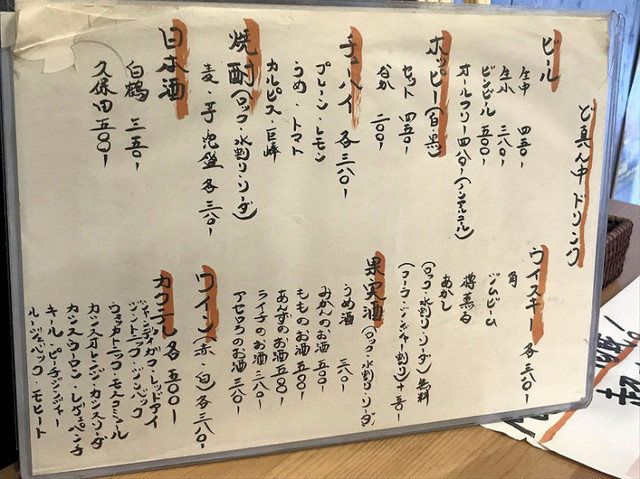 ど真ん中ドリンク
ビール
生中 四五〇-
生小 三八〇-
ビンビール 五〇〇-
オールフリー 四八〇-(ノンアルコール)
ホッピー(白・黒)
セット 四五〇-
なか 二〇〇-
チューハイ 各三八〇-
プレーン・レモン
うめ・トマト
カルピス・巨峰
焼酎(ロック・水割り・ソーダ)
麦・芋・泡盛 各三八〇-
日本酒
白鶴 三五〇-
久保田 五〇〇-
ウイスキー 各三八〇-
角
ジムビーム
樽薫る
あかし
(ロック・水割り・ソーダ)無料
(コーク・ジンジャー割り)+五〇-
果実酒(ロック・水割り・ソーダ)
うめ酒 三八〇-
みかんのお酒 五〇〇-
もものお酒 五〇〇-
あんずのお酒 五〇〇-
ライチのお酒 三八〇-
アセロラのお酒 三八〇-
ワイン(赤・白)各三八〇-
カクテル 各五〇〇-
シャンディガフ・レッドアイ
ジントニック・ジンバック
ウォッカトニック・モスコミュール
カシスオレンジ・カシスソーダ
カシスウーロン・レゲェパンチ
キール・ピーチジンジャー
ルージュバック・モヒート